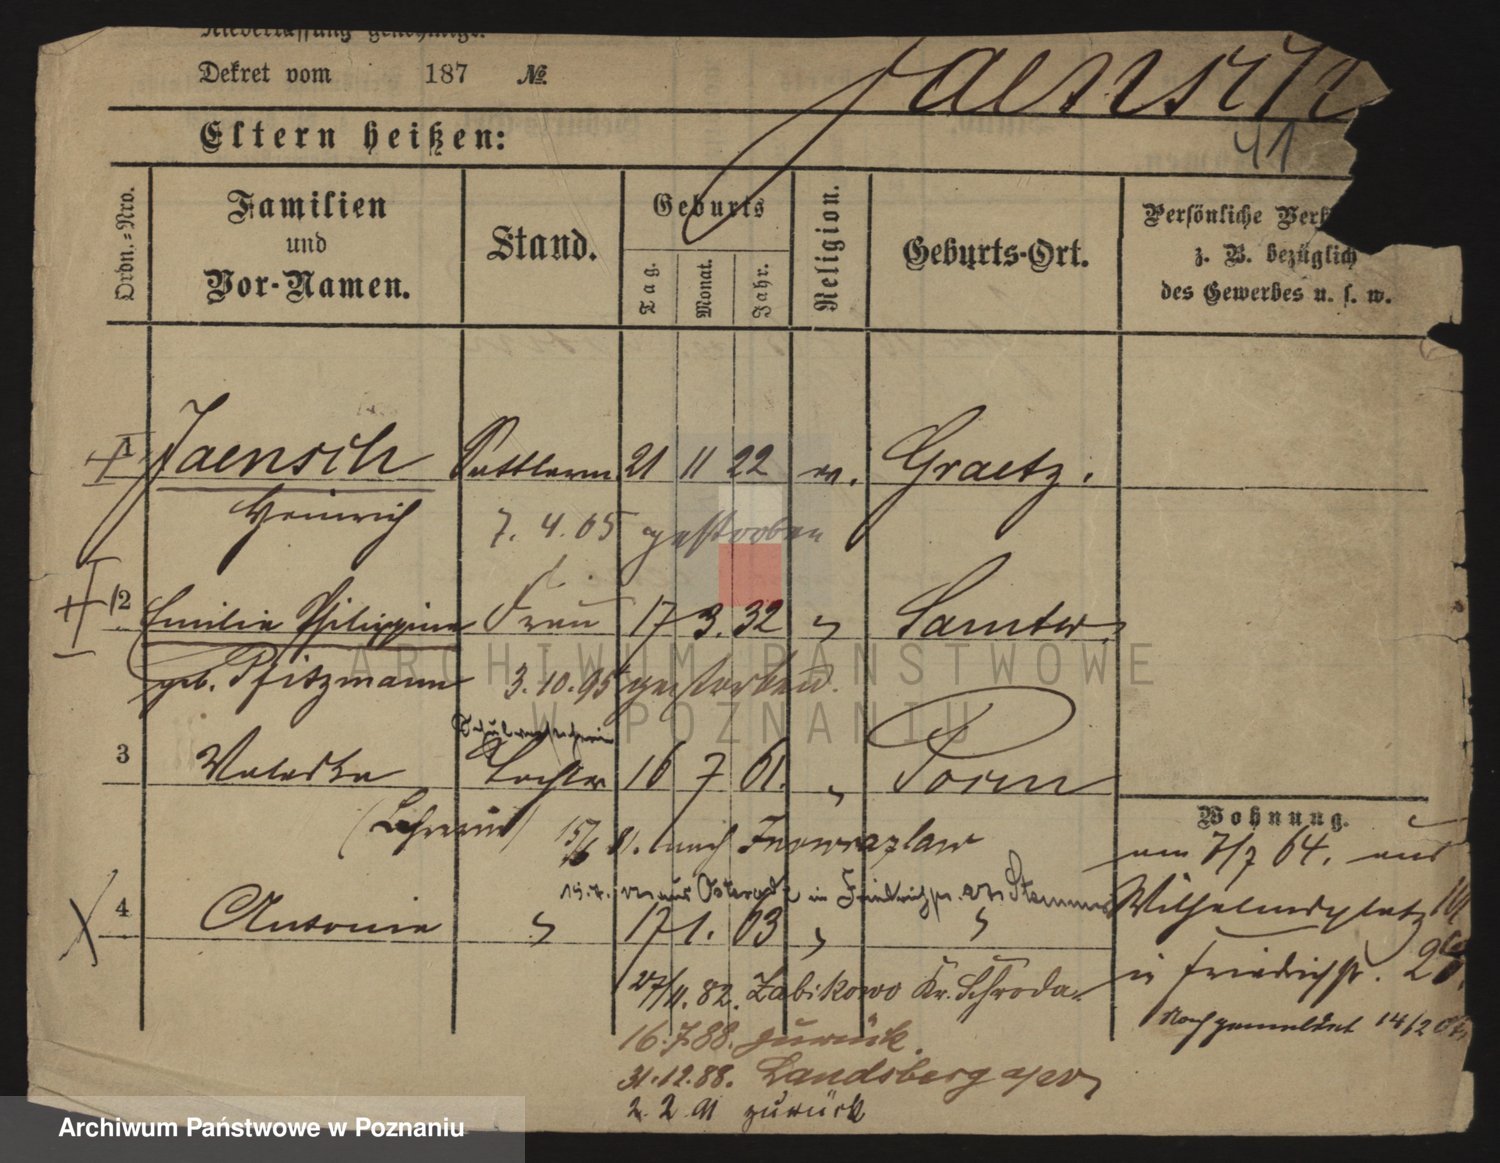 Niederlassung genehmigt.
Dekret vom 187 №
Jaensch
41
Eltern heißen:
Ordn.-Nro.
Familien
und
Vor-Namen.
Stand.
Geburts
Tag.
Monat.
Jahr.
Religion.
Geburts-Ort.
Persönliche
z. B. bezüglich
des Gewerbes u. s. w.
1 Jaensch Sattlerm. 21 11 22 ev. Graetz.
Heinrich 7. 4. 65 gestorben
2 Emilie Philippine Frau 17 3. 32 " Samter
geb. Pfitzmann 3.10.95 gestorben.
3 Valeska Tochter 16 7 61. " Posen
(Lehrerin) 15/6 81. nach Inowrazlaw
aus in Friedrichstr.
4 Antonie " 17 1. 63 " "
27/11. 82. Zabikowo Kr. Schroda
16.7.88. zurück.
31.12.88. Landsberg a/W
2. 2. 91 zurück
Wohnung.
am 7/7 64. aus
Wilhelmsplatz
in Friedrichstr.
Nachgemeldet 14/2
ARCHIWUM PAŃSTWOWE
W POZNANIU
Archiwum Państwowe w Poznaniu